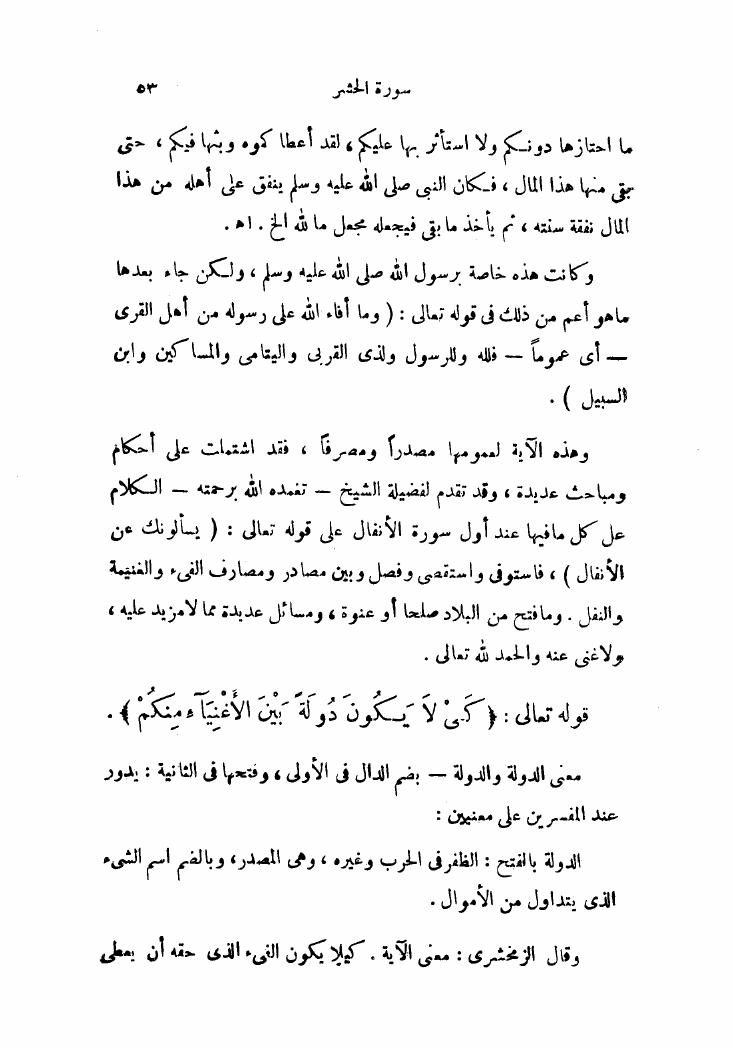 سورة الحشر ٥٣
ما احتازها دونكم ولا استأثر بها عليكم ، لقد أعطا كموه وبثها فيكم ، حتى
بقى منها هذا المال ، فكان النبى صلى الله عليه وسلم ينفق على أهله من هذا
المال نفقة سنته ، ثم يأخذ ما بقى فيجعله مجعل ما لله الخ . اهـ .
وكانت هذه خاصة برسول الله صلى الله عليه وسلم ، ولكن جاء بعدها
ماهو أعم من ذلك فى قوله تعالى : ( وما أفاء الله على رسوله من أهل القرى
— أى عموماً — فلله وللرسول ولذى القربى واليتامى والمساكين وابن
السبيل ) .
وهذه الآية لعمومها مصدراً ومصرفاً ، فقد اشتملت على أحكام
ومباحث عديدة ، وقد تقدم لفضيلة الشيخ — تغمده الله برحمته — الكلام
على كل مافيها عند أول سورة الأنفال على قوله تعالى : ( يسألونك عن
الأنفال ) ، فاستوفى واستقصى وفصل وبين مصادر ومصارف الفىء والغنيمة
والنفل . ومافتح من البلاد صلحا أو عنوة ، ومسائل عديدة مما لامزيد عليه ،
ولاغنى عنه والحمد لله تعالى .
قوله تعالى : ﴿ كَىْ لاَ يَكُونَ دُولَةً بَيْنَ الأَغْنِيَآءِ مِنكُمْ ﴾ .
معنى الدولة والدولة — بضم الدال فى الأولى ، وفتحها فى الثانية : يدور
عند المفسرين على معنيين :
الدولة بالفتح : الظفر فى الحرب وغيره ، وهى المصدر ، وبالضم اسم الشىء
الذى يتداول من الأموال .
وقال الزمخشرى : معنى الآية . كيلا يكون الفىء الذى حقه أن يعطى